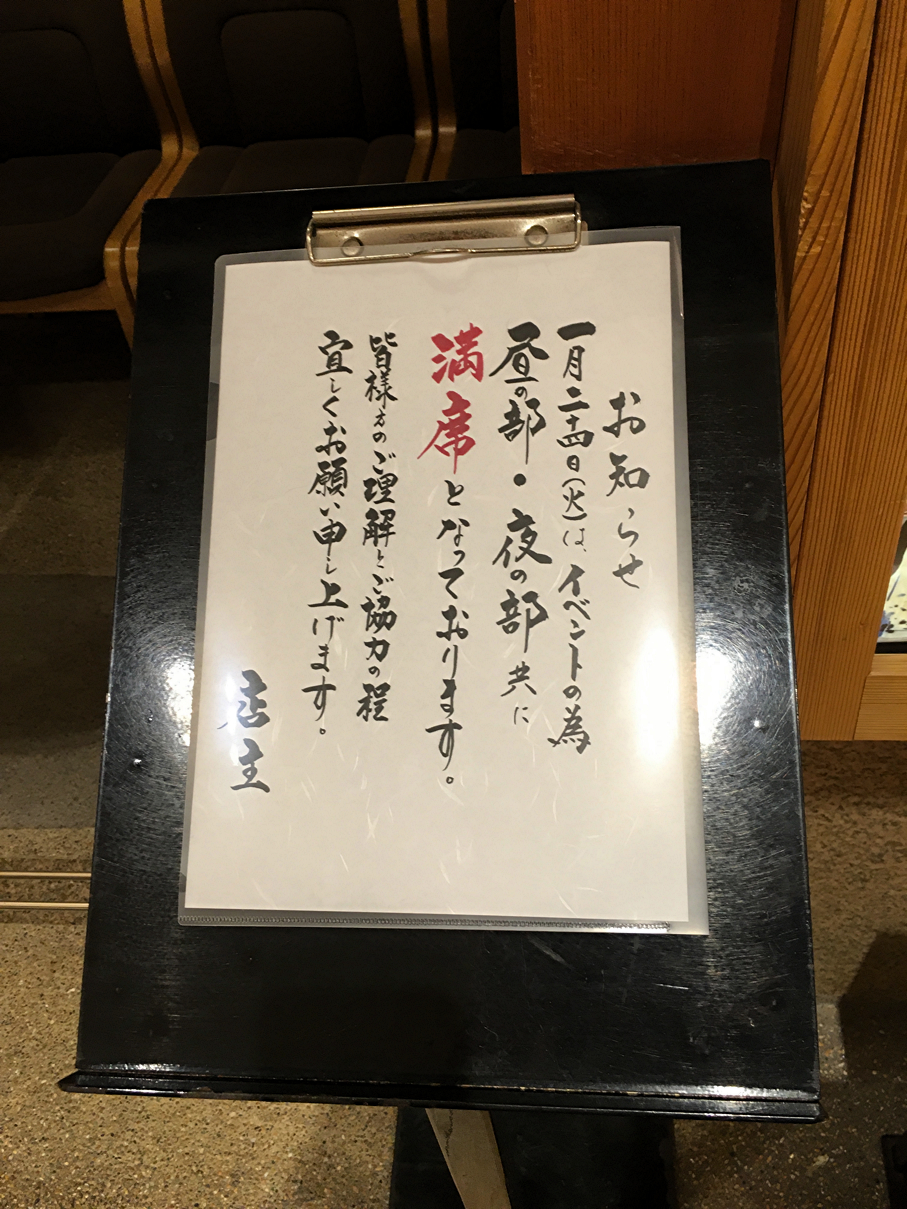 お知らせ
一月二十四日(火)は、イベントの為
昼の部・夜の部共に
満席となっております。
皆様方のご理解とご協力の程
宜しくお願い申し上げます。
店主